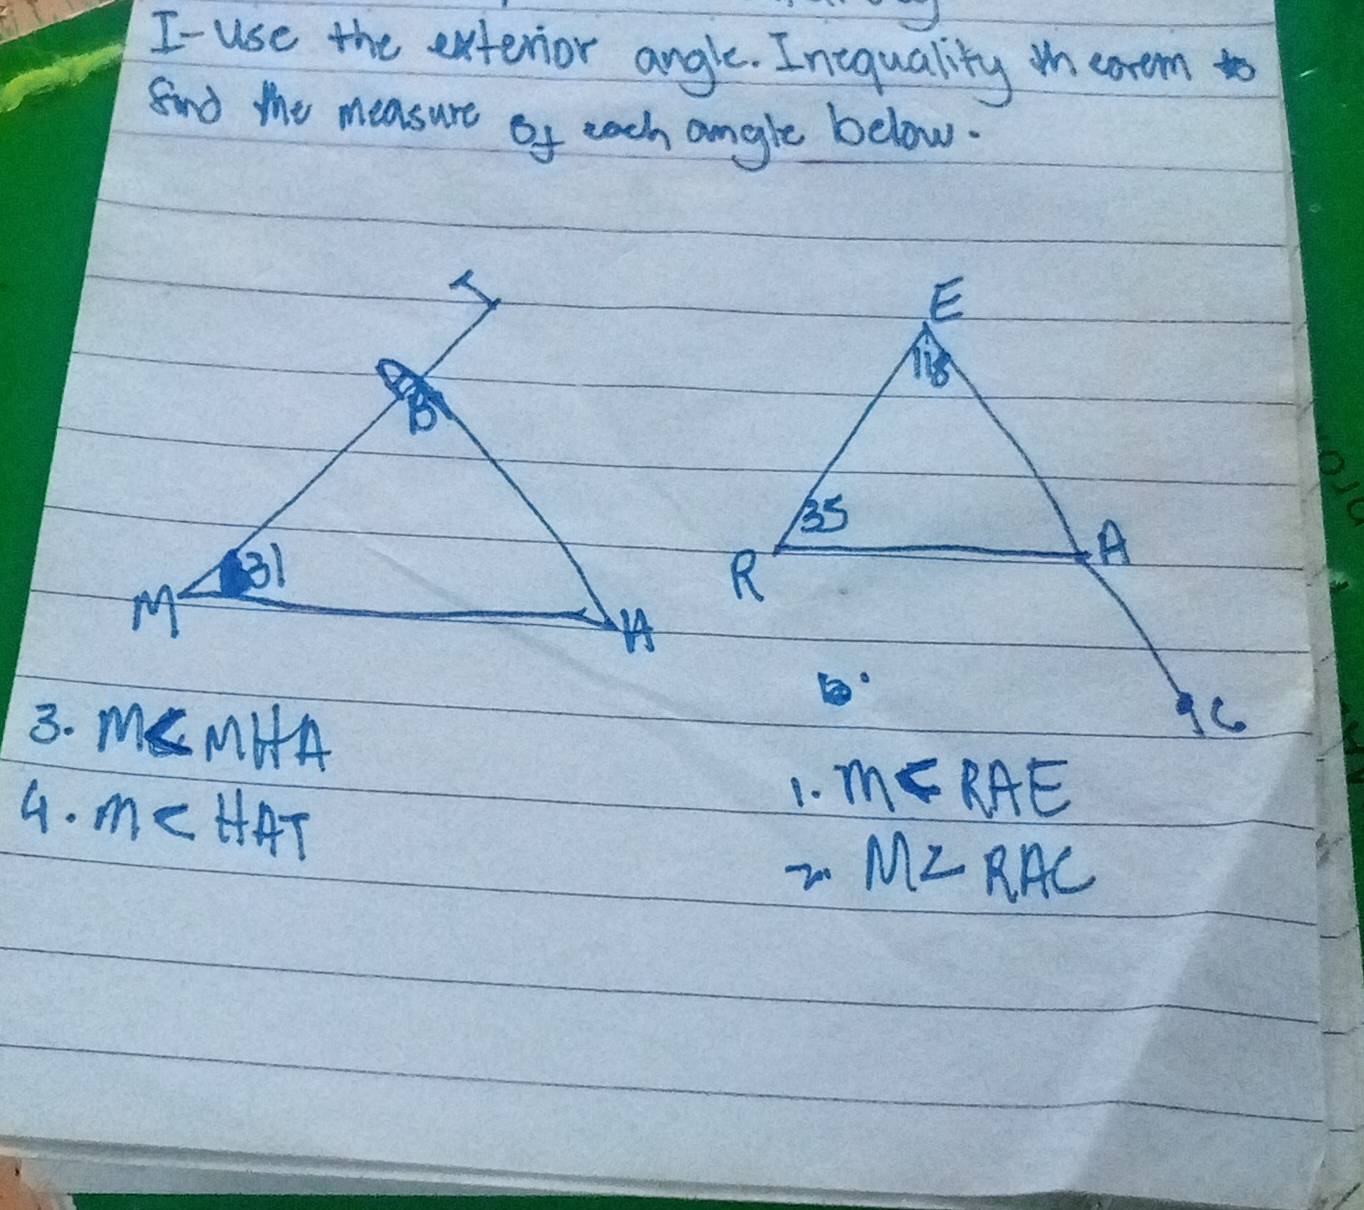 I- Use the exterior angle. Inequality theorem to
find the measure of each angle below.
T
E
B
118
35
A
R
31
M
H
C
3. m< MHA
4. m< HAT
1. m< RAE
2. M∠ RAC